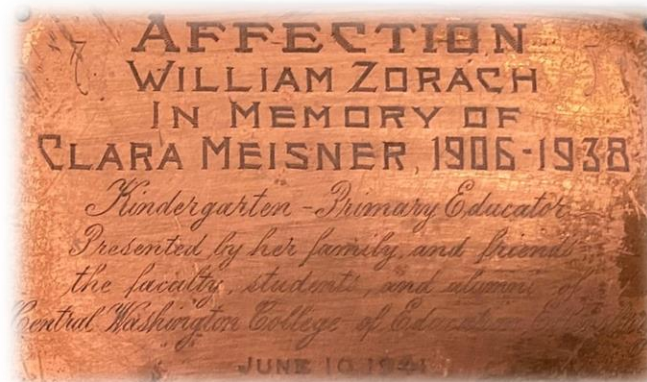 AFFECTION
WILLIAM ZORACH
IN MEMORY OF
CLARA MEISNER, 1906-1938
Kindergarten - Primary Educator
Presented by her family, and friends
the faculty, students, and alumni of
Central Washington College of Education
JUNE 10 1941